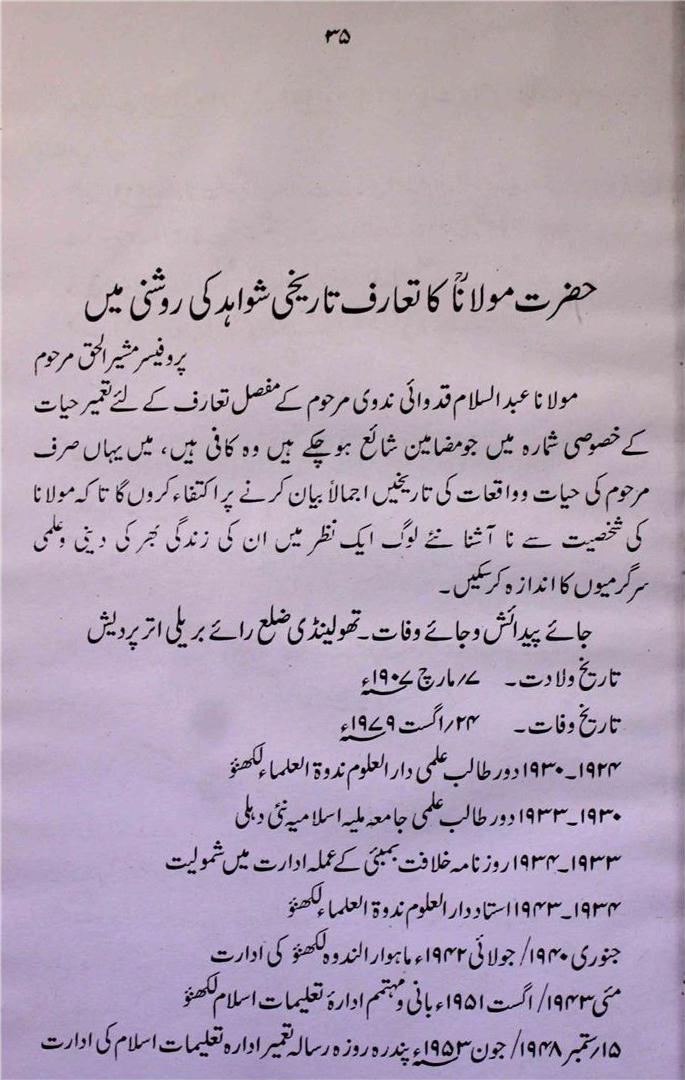 ۳۵
حضرت مولاناؒ کا تعارف تاریخی شواہد کی روشنی میں
پروفیسر مشیر الحق مرحوم
مولانا عبد السلام قدوائی ندوی مرحوم کے مفصل تعارف کے لئے تعمیر حیات
کے خصوصی شمارہ میں جو مضامین شائع ہو چکے ہیں وہ کافی ہیں، میں یہاں صرف
مرحوم کی حیات وواقعات کی تاریخیں اجمالاً بیان کرنے پر اکتفاء کروں گا تا کہ مولانا
کی شخصیت سے نا آشنا نئے لوگ ایک نظر میں ان کی زندگی بھر کی دینی وعلمی
سرگرمیوں کا اندازہ کرسکیں۔
جائے پیدائش وجائے وفات۔ تھولینڈی ضلع رائے بریلی اتر پردیش
تاریخ ولادت۔ ۷/مارچ ۱۹۰۷ء
تاریخ وفات۔ ۲۴/اگست ۱۹۷۹ء
۱۹۲۴۔۱۹۳۰ دور طالب علمی دار العلوم ندوۃ العلماء لکھنؤ
۱۹۳۰۔۱۹۳۳ دور طالب علمی جامعہ ملیہ اسلامیہ نئی دہلی
۱۹۳۳۔۱۹۳۴ روزنامہ خلافت بمبئی کے عملہ ادارت میں شمولیت
۱۹۳۴۔۱۹۴۳ استاد دار العلوم ندوۃ العلماء لکھنؤ
جنوری ۱۹۴۰/ جولائی ۱۹۴۲ء ماہوار الندوہ لکھنؤ کی ادارت
مئی ۱۹۴۳/ اگست ۱۹۵۱ء بانی ومہتمم ادارۂ تعلیمات اسلام لکھنؤ
۱۵/ستمبر ۱۹۴۸/ جون ۱۹۵۳ء پندرہ روزہ رسالہ تعمیر ادارہ تعلیمات اسلام کی ادارت